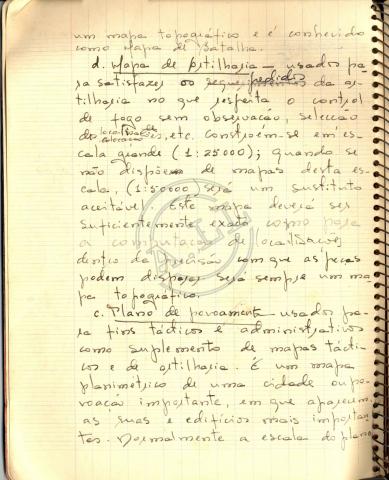 um mapa topográfico e é conhecido
como Mapa de Batalha.
d. Mapa de Artilharia — usados pa-
ra satisfazer os pedidos da ar-
tilharia no que respeita o control
de fogo sem observação, selecção
de localizações, etc. Constroem-se em es-
cala grande (1:25000); quando se
não dispõe de mapas desta es-
cala, (1:50000) será um sustituto
aceitável. Este mapa deverá ser
suficientemente exato como para
a computação de localizações
dentro da precisão com que as peças
podem disparar será sempre um ma-
pa topográfico.
c. Plano de povoamento usados pa-
ra fins tácticos e administrativos
como suplemento de mapas tácti-
cos e de artilharia. É um mapa
planimétrico de uma cidade ou po-
voação importante, em que aparecem
as ruas e edifícios mais importan-
tes. Normalmente a escala do plano